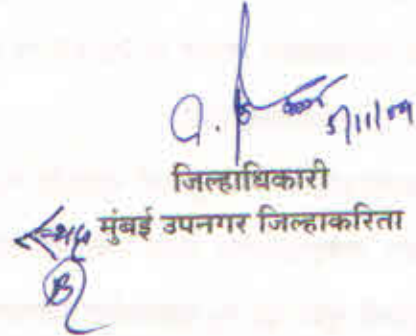 5/11/09
जिल्हाधिकारी
मुंबई उपनगर जिल्हाकरिता